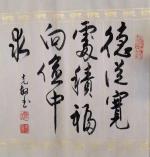 德從寬
處積福
向儉中
求